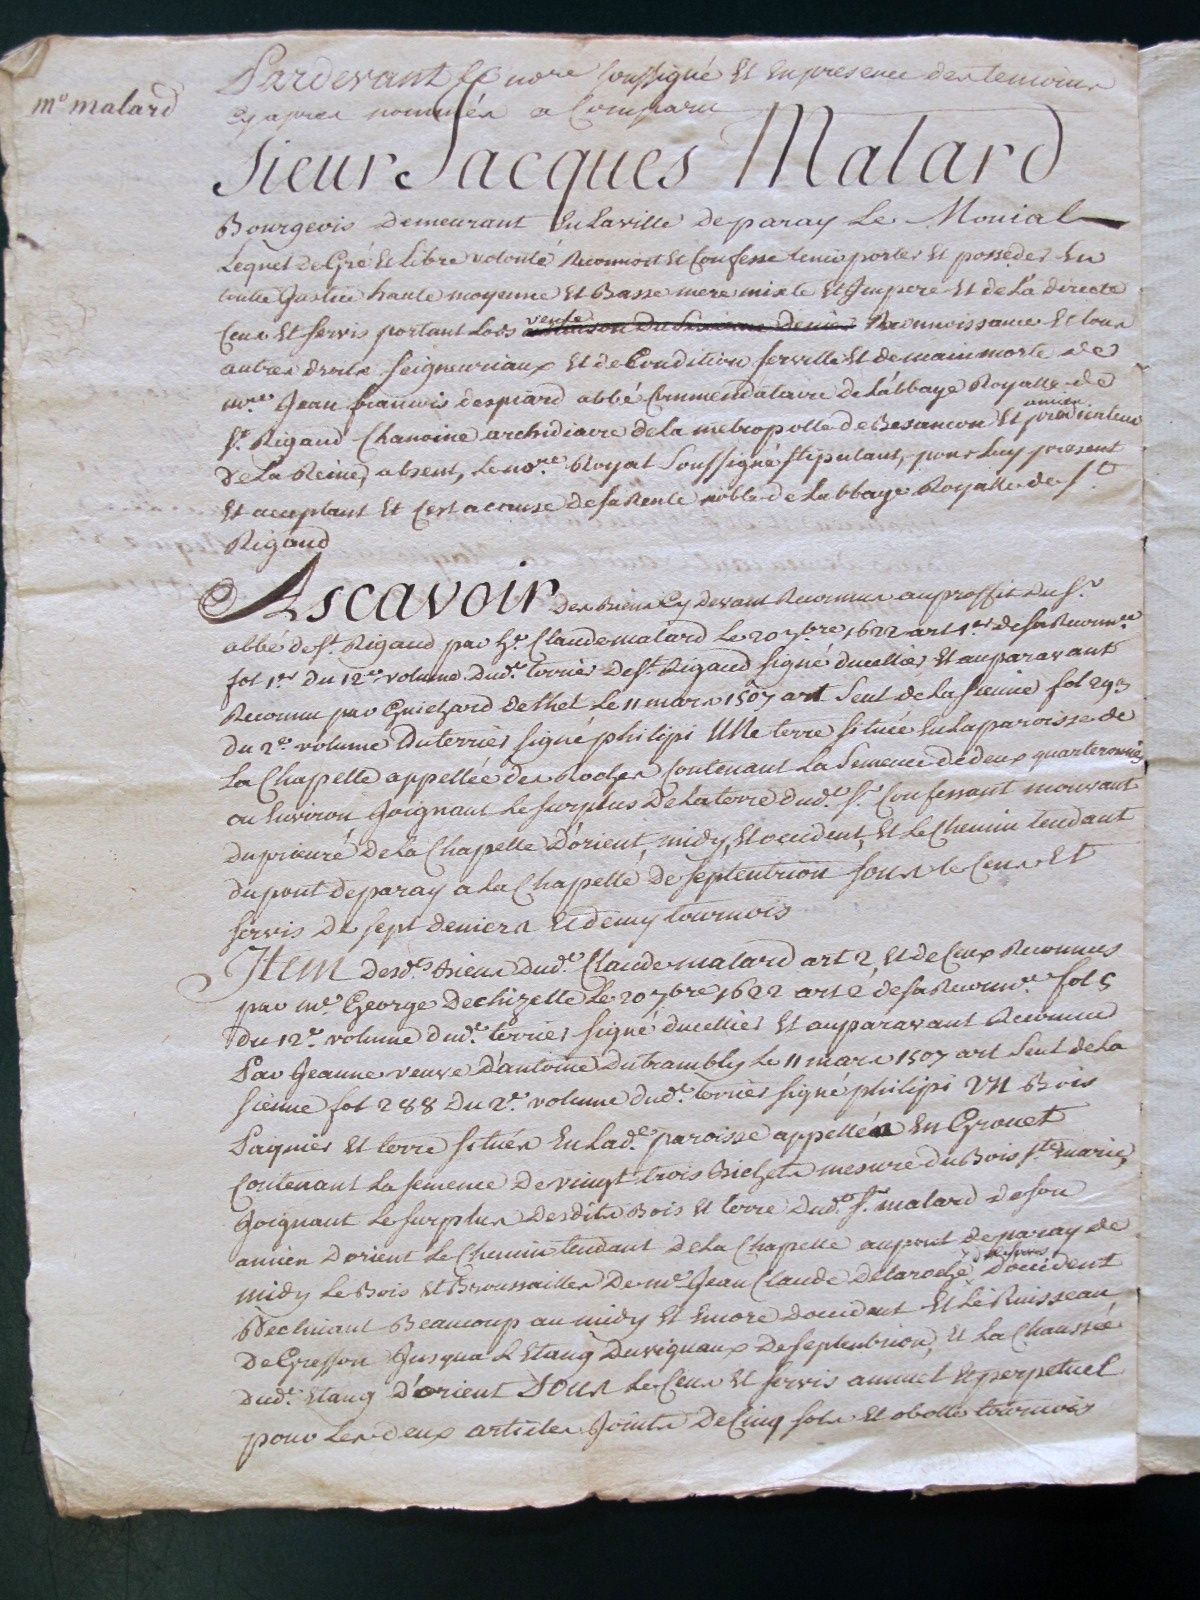 mᵉ malard
Pardevant Le noʳᵉ soussigné Et En presence des temoins
Cy apres nommés a Comparu
Sieur Jacques Malard
Bourgeois Demeurant En la ville de paray Le Monial
Lequel De Gré Et Libre volonté Reconnoit Et Confesse tenir porter Et posseder En
toutte Justice haute moyenne Et Basse mere mixte Et Impere Et de La directe
Cens Et servis portant Lods vente Reconnoissance Et tous
autres droits seigneuriaux Et de Condition serville Et de main morte de
mʳᵉ Jean francois despiard abbé Commendataire de L'abbaye Royalle de
Sᵗ Rigaud Chanoine archidiacre de la metropolle de Besancon Et ancien predicateur
De La Reine, absent, Le noʳᵉ Royal soussigné stipulant, pour Luy present
Et acceptant Et C'est a cause de sa Rente noble de Labbaye Royalle de Sᵗ
Rigaud
Ascavoir Des Biens Cy devant Reconnus au proffit du Sʳ
abbé de Sᵗ Rigaud par hᵉ Claude malard Le 20 7bre 1622 art 1ᵉʳ de sa Reconnᶜᵉ
fol 1ᵉʳ du 12ᵉ volume Dudᵗ terrier de Sᵗ Rigaud signé ducellier Et auparavant
Reconnu par Guichard dethel Le 11 mars 1507 art seul de la sienne fol 293
Du 2ᵉ volume Du terrier signé philipi Une terre située En La paroisse de
La Chapelle appellée des Roches Contenant La semence de deux quarteronnées
ou Environ Joignant Le surplus De La terre dudᵗ Sʳ Confessant mouvant
Du prieuré De La Chapelle D'orient, midy, Et occident, Et Le Chemin tendant
du pont de paray a La Chapelle De septentrion sous le Cens Et
servis De sept deniers Et demy tournois
Item Desdˢ Biens Dudᵗ Claude malard art 2, Et de Ceux Reconnus
par mᵉ George Dechizelle Le 20 7bre 1622 art 2 de sa Reconnᶜᵉ fol 5
Du 12ᵉ volume Dudᵗ terrier signé ducellier Et auparavant Reconnu
Par Jeanne veuve D'antoine Dutrambly Le 11 mars 1507 art seul de La
sienne fol 288 Du 2ᵉ volume dudᵗ terrier signé philipi Un Bois
Paquier Et terre situés En Ladᵉ paroisse appellés En Gronet
Contenant La semence De vingt trois Bichets mesure du Bois Sᵗᵉ marie,
Joignant Le surplus Desdits Bois Et terre Dudᵗ Sʳ malard de son
ancien D'orient Le Chemin tendant De La Chapelle au pont de paray de
midy Le Bois Et Broussailles De mᵉ Jean Claude Delaroche D'occident
Declinant Beaucoup au midy Et Encore d'occident Et Le Ruisseau
De Gresson Jusqua L'Etang Du vignaux De septentrion, Et La Chaussée
Dudᵗ Etang D'orient Sous Le Cens Et servis annuel Et perpetuel
pour Les deux articles Joints De Cinq sols Et obolle tournois